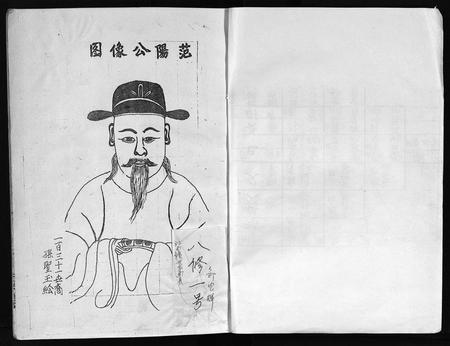 范陽公像图
八修一号
一百三十一世裔
孫聖玉繪